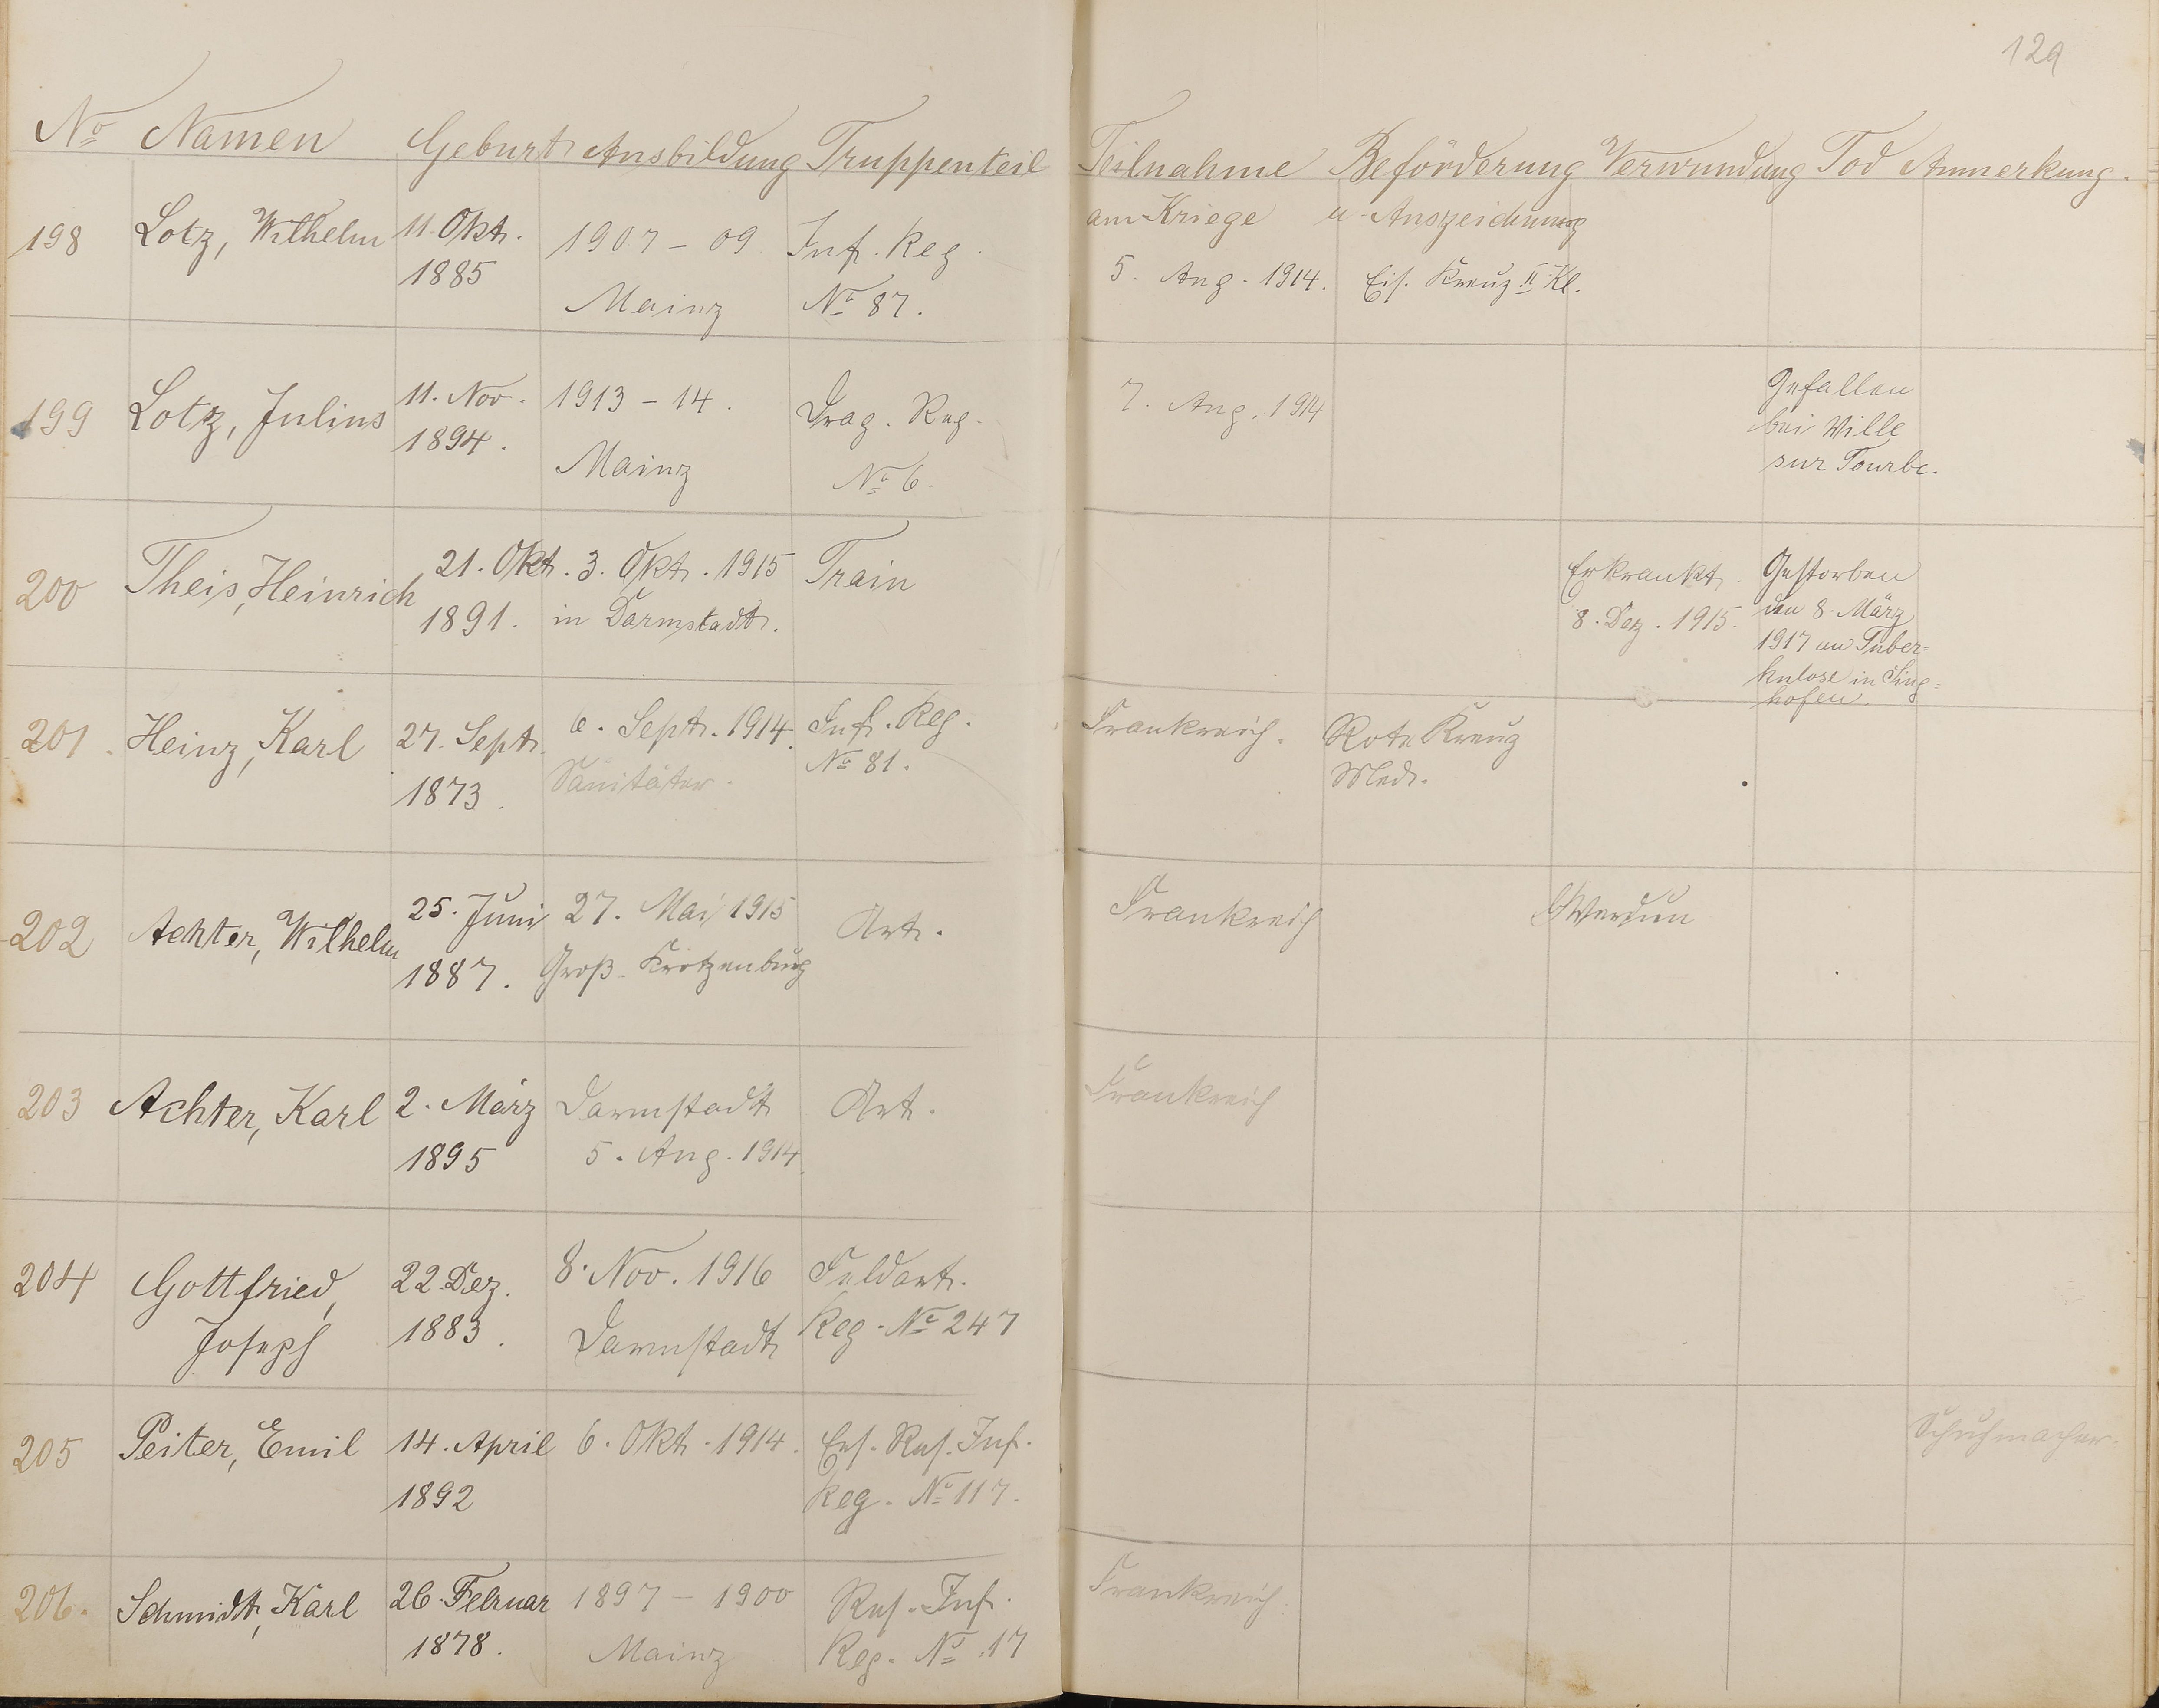 129
No Namen Geburt Ausbildung Truppenteil Teilnahme Beförderung Verwundung Tod Anmerkung.
am Kriege u. Auszeichnung
198 Lotz, Wilhelm 11. Okt. 1907 - 09. Inf. Reg.
1885 Mainz No 87. 5. Aug. 1914. Eis. Kreuz II Kl.
199 Lotz, Julius 11. Nov. 1913 - 14. Drag. Reg. 7. Aug. 1914 Gefallen
1894. Mainz No 6. bei Wille
sur Tourbe.
200 Theis, Heinrich 21. Okt. 3. Okt. 1915 Train Erkrankt Gestorben
1891. in Darmstadt. 8. Dez. 1915. den 8. März
1917 an Tuber=
kulose in Sing=
hofen.
201. Heinz, Karl 27. Sept. 6. Sept. 1914. Inf. Reg. Frankreich. Rote Kreuz
1873. Sanitäter. No 81. Med.
202 Achter, Wilhelm 25. Juni 27. Mai 1915 Art. Frankreich Werdun
1887. Groß-Krotzenburg
203 Achter, Karl 2. März Darmstadt Art. Frankreich
1895 5. Aug. 1914.
204 Gottfried, 22. Dez. 8. Nov. 1916 Feldart.
Joseph 1883. Darmstadt Reg. No 247
205 Peiter, Emil 14. April 6. Okt. 1914. Ers. Res. Inf. Schuhmacher.
1892 Reg. No 117.
206. Schmidt, Karl 26. Februar 1897 - 1900 Res. Inf. Frankreich.
1878. Mainz Reg. No 17